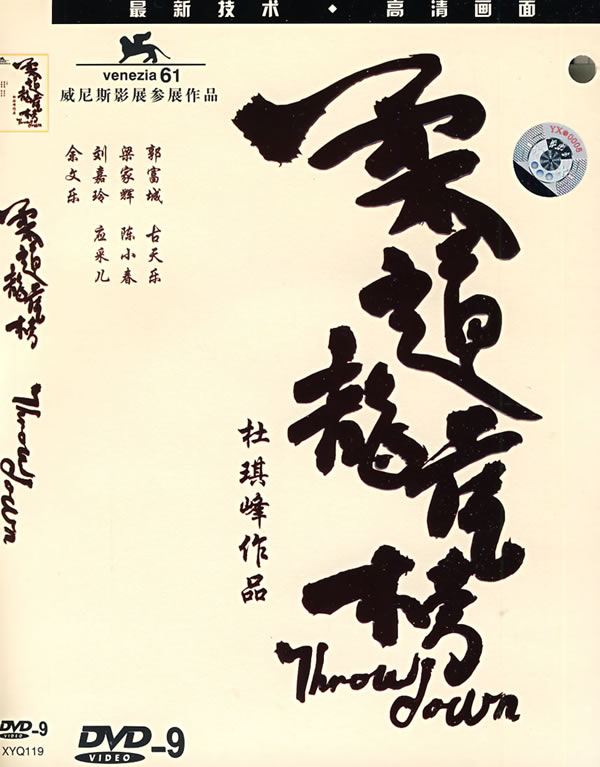 最新技术 · 高清画面
venezia 61
威尼斯影展参展作品
郭富城 古天乐
梁家辉 陈小春
刘嘉玲 应采儿
余文乐
柔道龍虎榜
Throw down
杜琪峰作品
DVD-9
VIDEO
YX●0008
柔道龍虎榜
柔道龍虎榜
Throw down
DVD-9
VIDEO
XYQ119